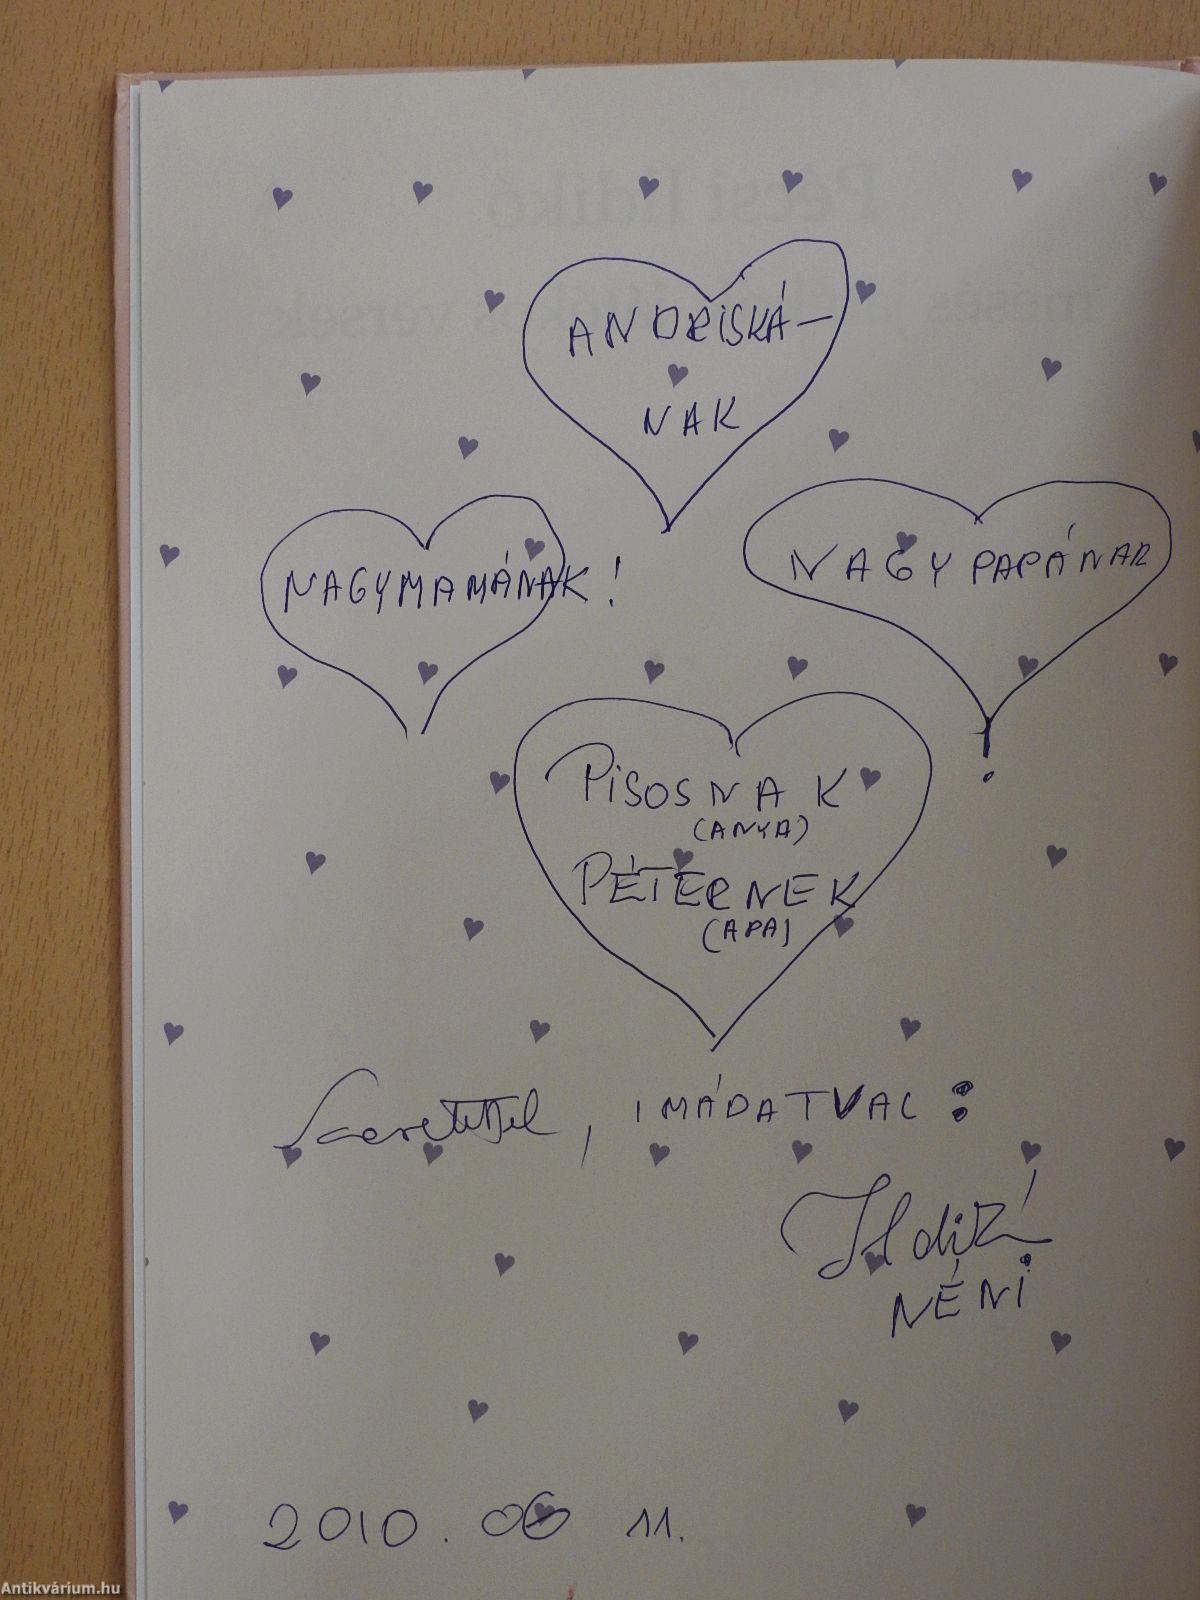 Pécsi Ildikó
ANDRISKÁ-
NAK
NAGYMAMÁNAK!
NAGYPAPÁNAK
!
PISOSNAK
(ANYA)
PÉTERNEK
(APA)
Szeretettel, IMÁDATVAL:
Ildikó
NÉNI
2010. 06 11.
Antikvárium.hu